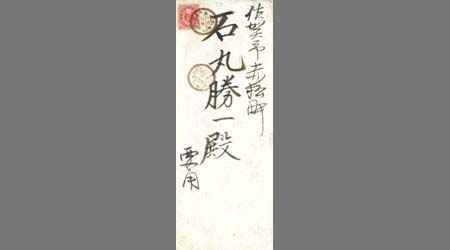 佐賀市赤松町
石丸勝一殿
要用